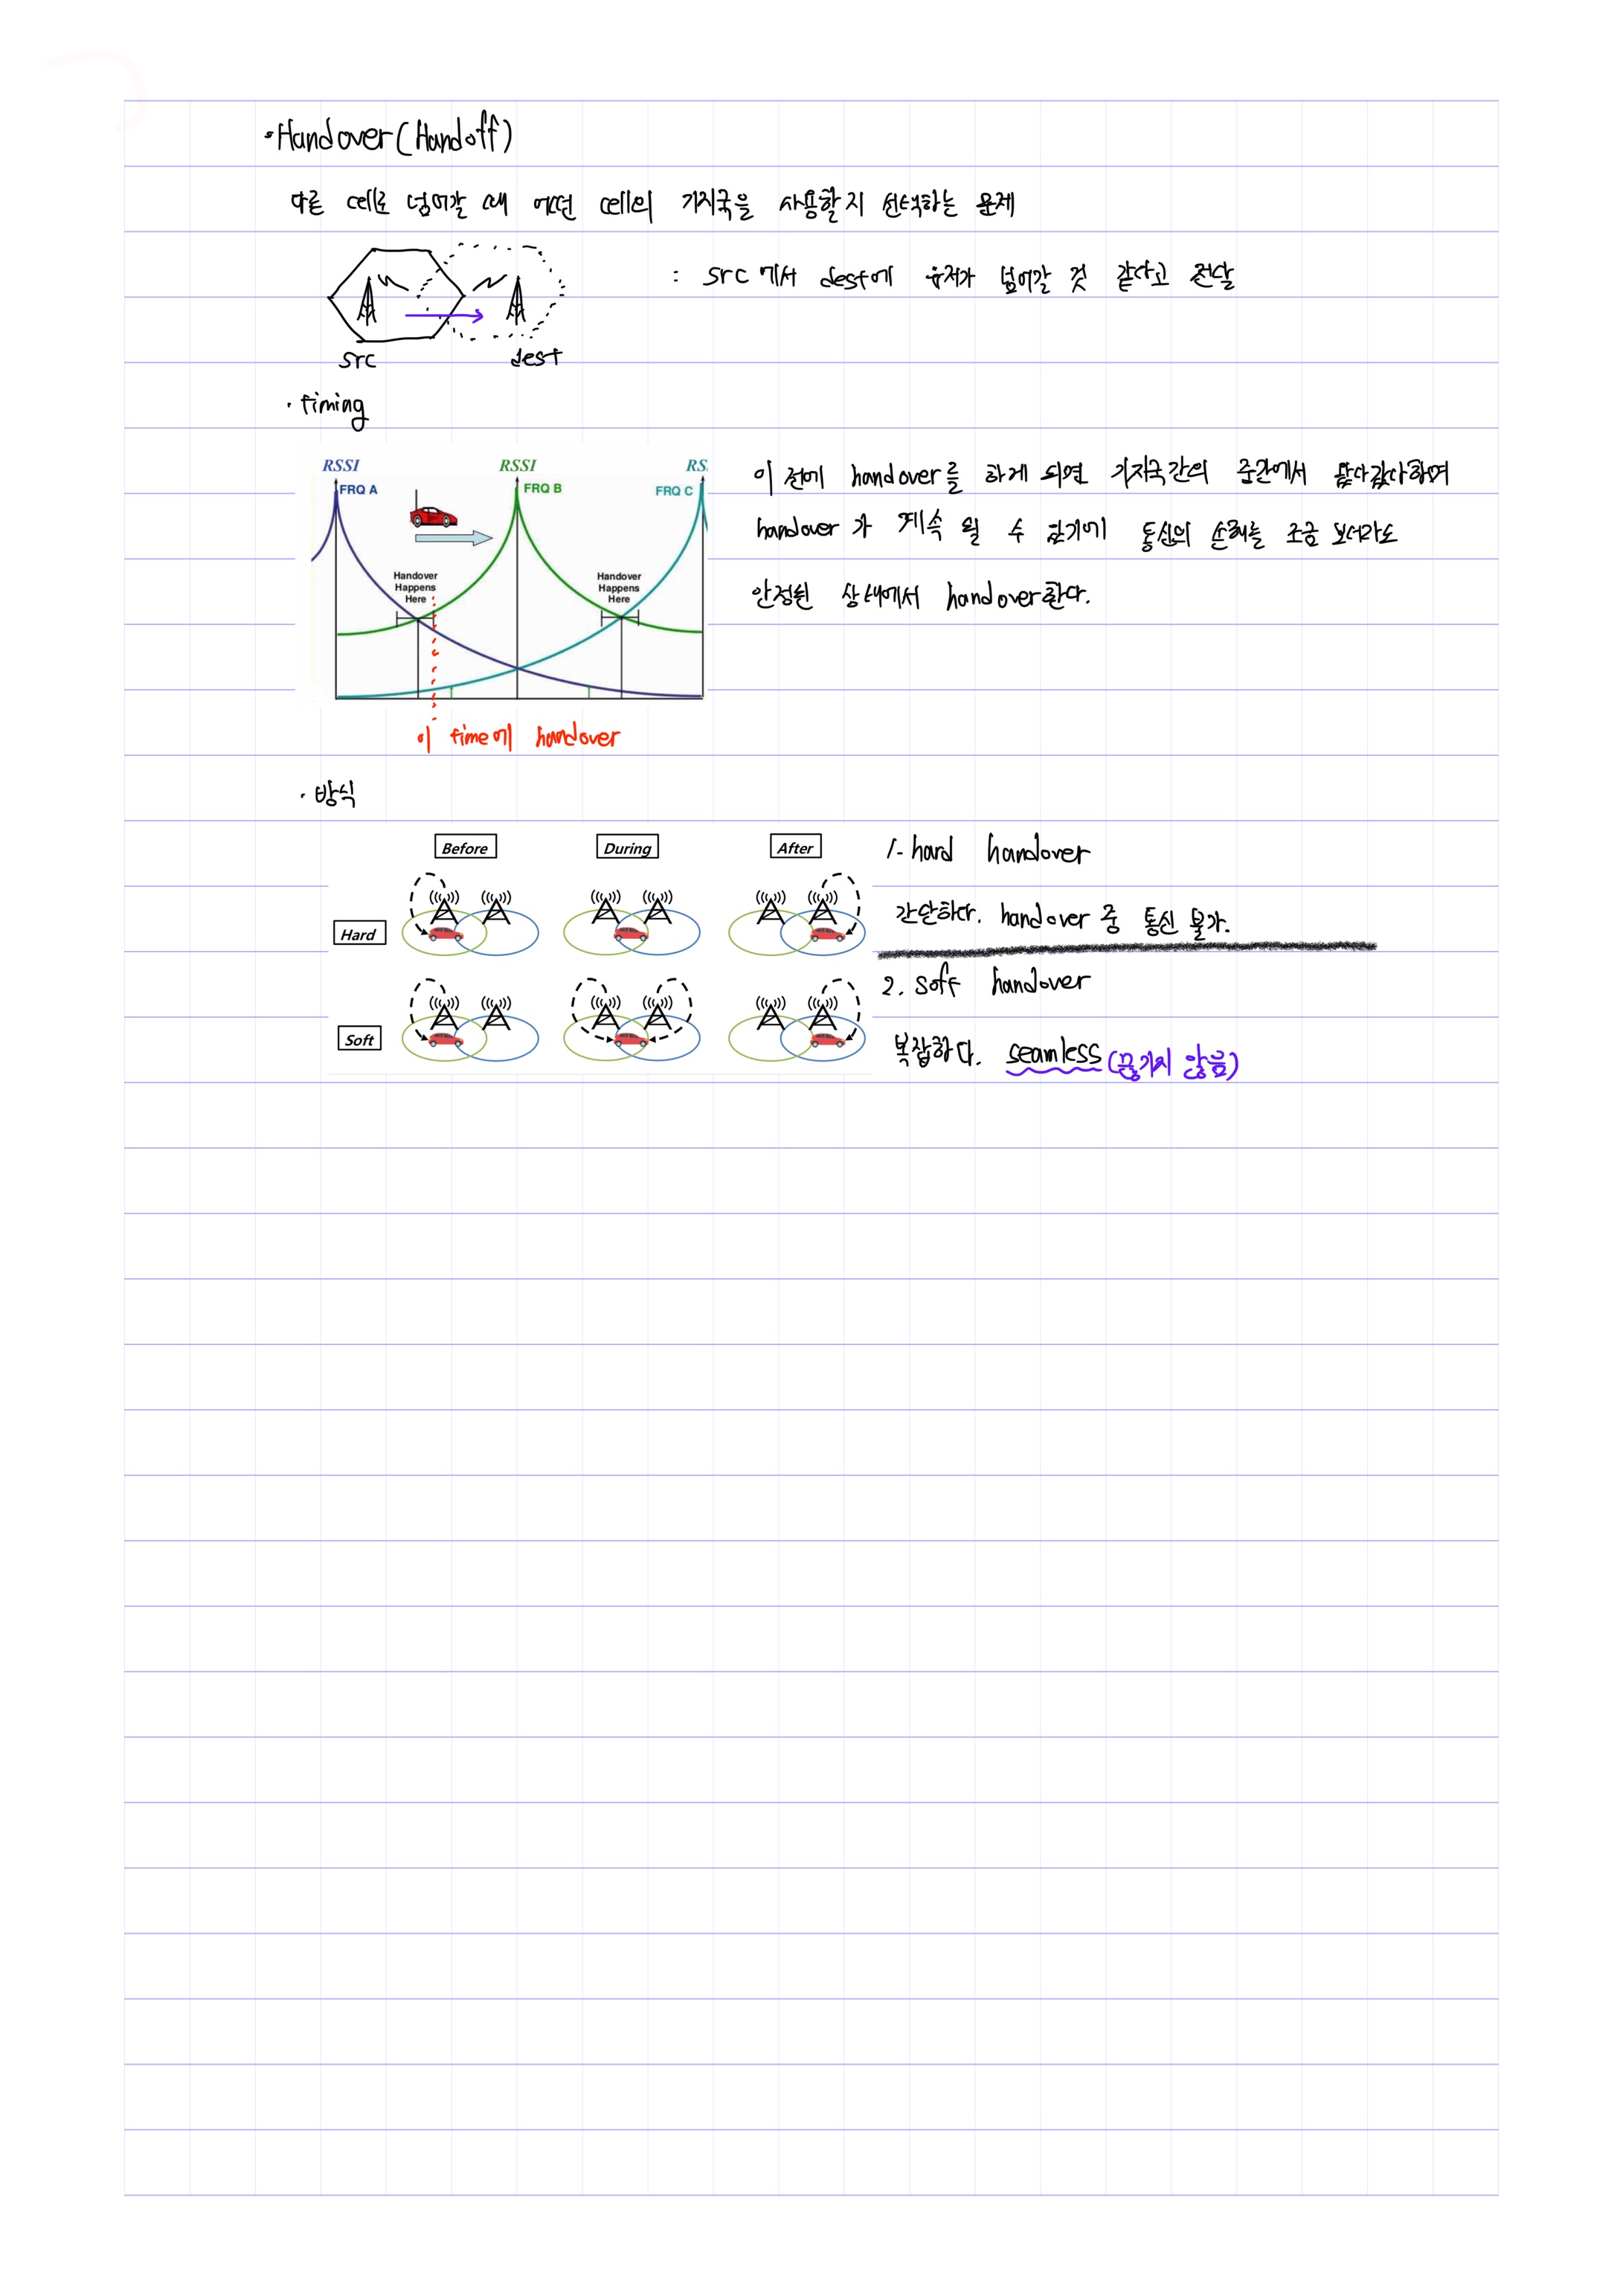 ·Handover(Handoff)
다른 cell로 넘어갈 때 어떤 cell의 기지국을 사용할지 선택하는 문제
: src에서 dest에 유저가 넘어갈 것 같다고 전달
src dest
· timing
RSSI RSSI RS
FRQ A FRQ B FRQ C
Handover Happens Here
Handover Happens Here
이 time에 handover
이 전에 handover를 하게 되면 기지국간의 중간에서 왔다갔다하며
handover가 계속 될 수 있기에 통신의 손해를 조금 보더라도
안정된 상태에서 handover한다.
· 방식
Before During After
Hard
Soft
1. hard handover
간단하다. handover 중 통신 불가.
2. soft handover
복잡하다. seamless (끊기지 않음)